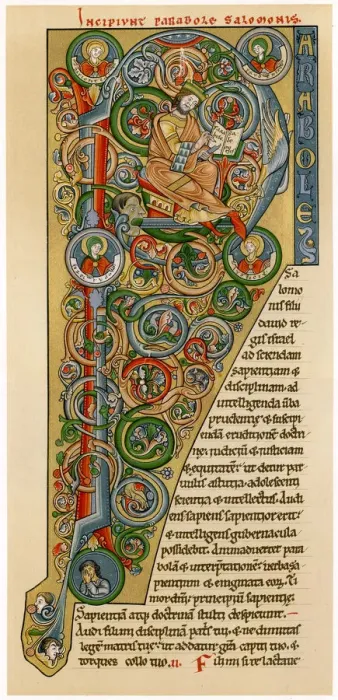 Incipiunt parabole salomonis.
PARABOLE
S
Sa
lomo
nis filii
dauid re-
gis israel
ad sciendam
sapientiam &
disciplinam. ad
intelligenda uerba
prudentie. & suscipi
endā eruditionē doctri
ne. iudiciū & iusticiam
& equitatē. ut detur par
uulis astutia. adolescenti
scientia & intellectus. Audi
ens sapiens sapientior erit.
& intelligens gubernacula
possidebit. Animaduertet para
bolā & interpretationē. uerba sa
pientium & enigmata eoꝝ. Ti
mor dñi principiū sapientie.
Sapientiā atq; doctrinā stulti despiciunt.
Audi fili mi disciplinā patris tui. & ne dimittas
legē matris tue. ut addatur grā capiti tuo. &
torques collo tuo. ii. Fili mi si te lactaue